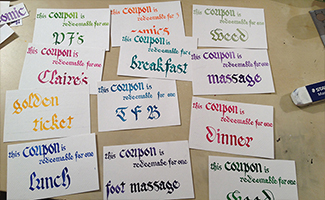 omic
this coupon is
redeemable for one
P7's
this coupon is
redeemable for
comics
this coupon is
redeemable for one
Weed
this coupon is
redeemable for one
Claire's
this coupon is
redeemable for one
breakfast
this coupon is
redeemable for one
massage
golden
ticket
this coupon is
redeemable for one
TFB
this coupon is
redeemable for one
Dinner
this coupon is
redeemable for one
lunch
this coupon is
redeemable for one
foot massage
this coupon is
redeemable for one
Weed